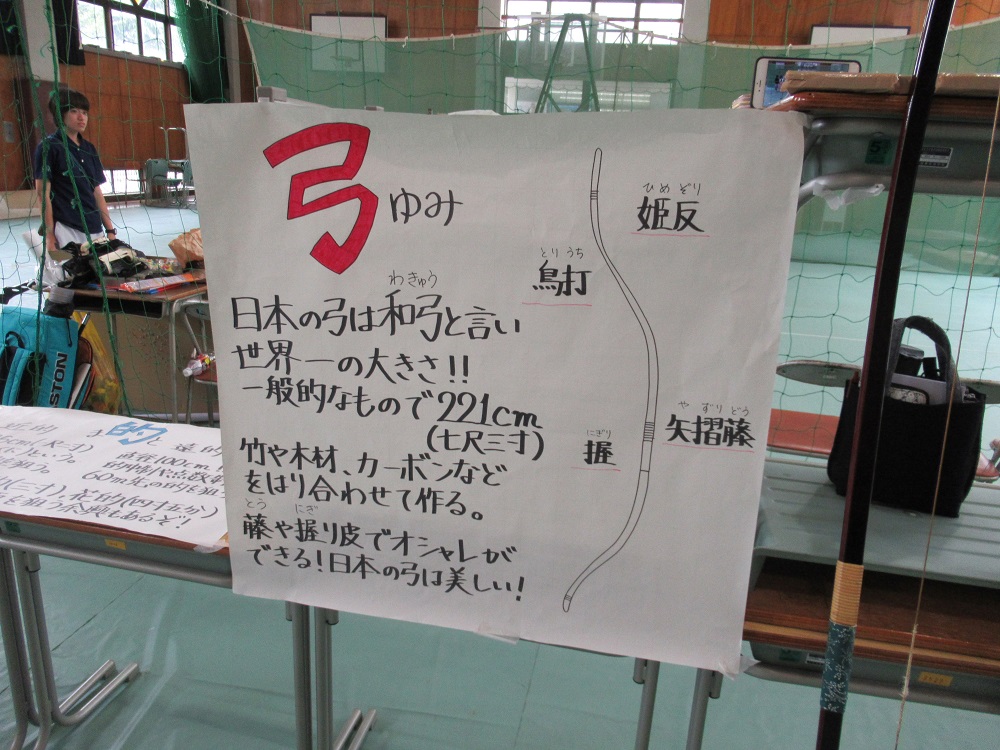 弓 ゆみ
わきゅう
日本の弓は和弓と言い
世界一の大きさ!!
一般的なもので221cm
(七尺三寸)
竹や木材、カーボンなど
をはり合わせて作る。
とう にぎ
藤や握り皮でオシャレが
できる!日本の弓は美しい!
ひめ ぞり
姫反
とり うち
鳥打
や ずり どう
矢摺藤
にぎり
握
的
直径100cm
60m先の的を
EASTON